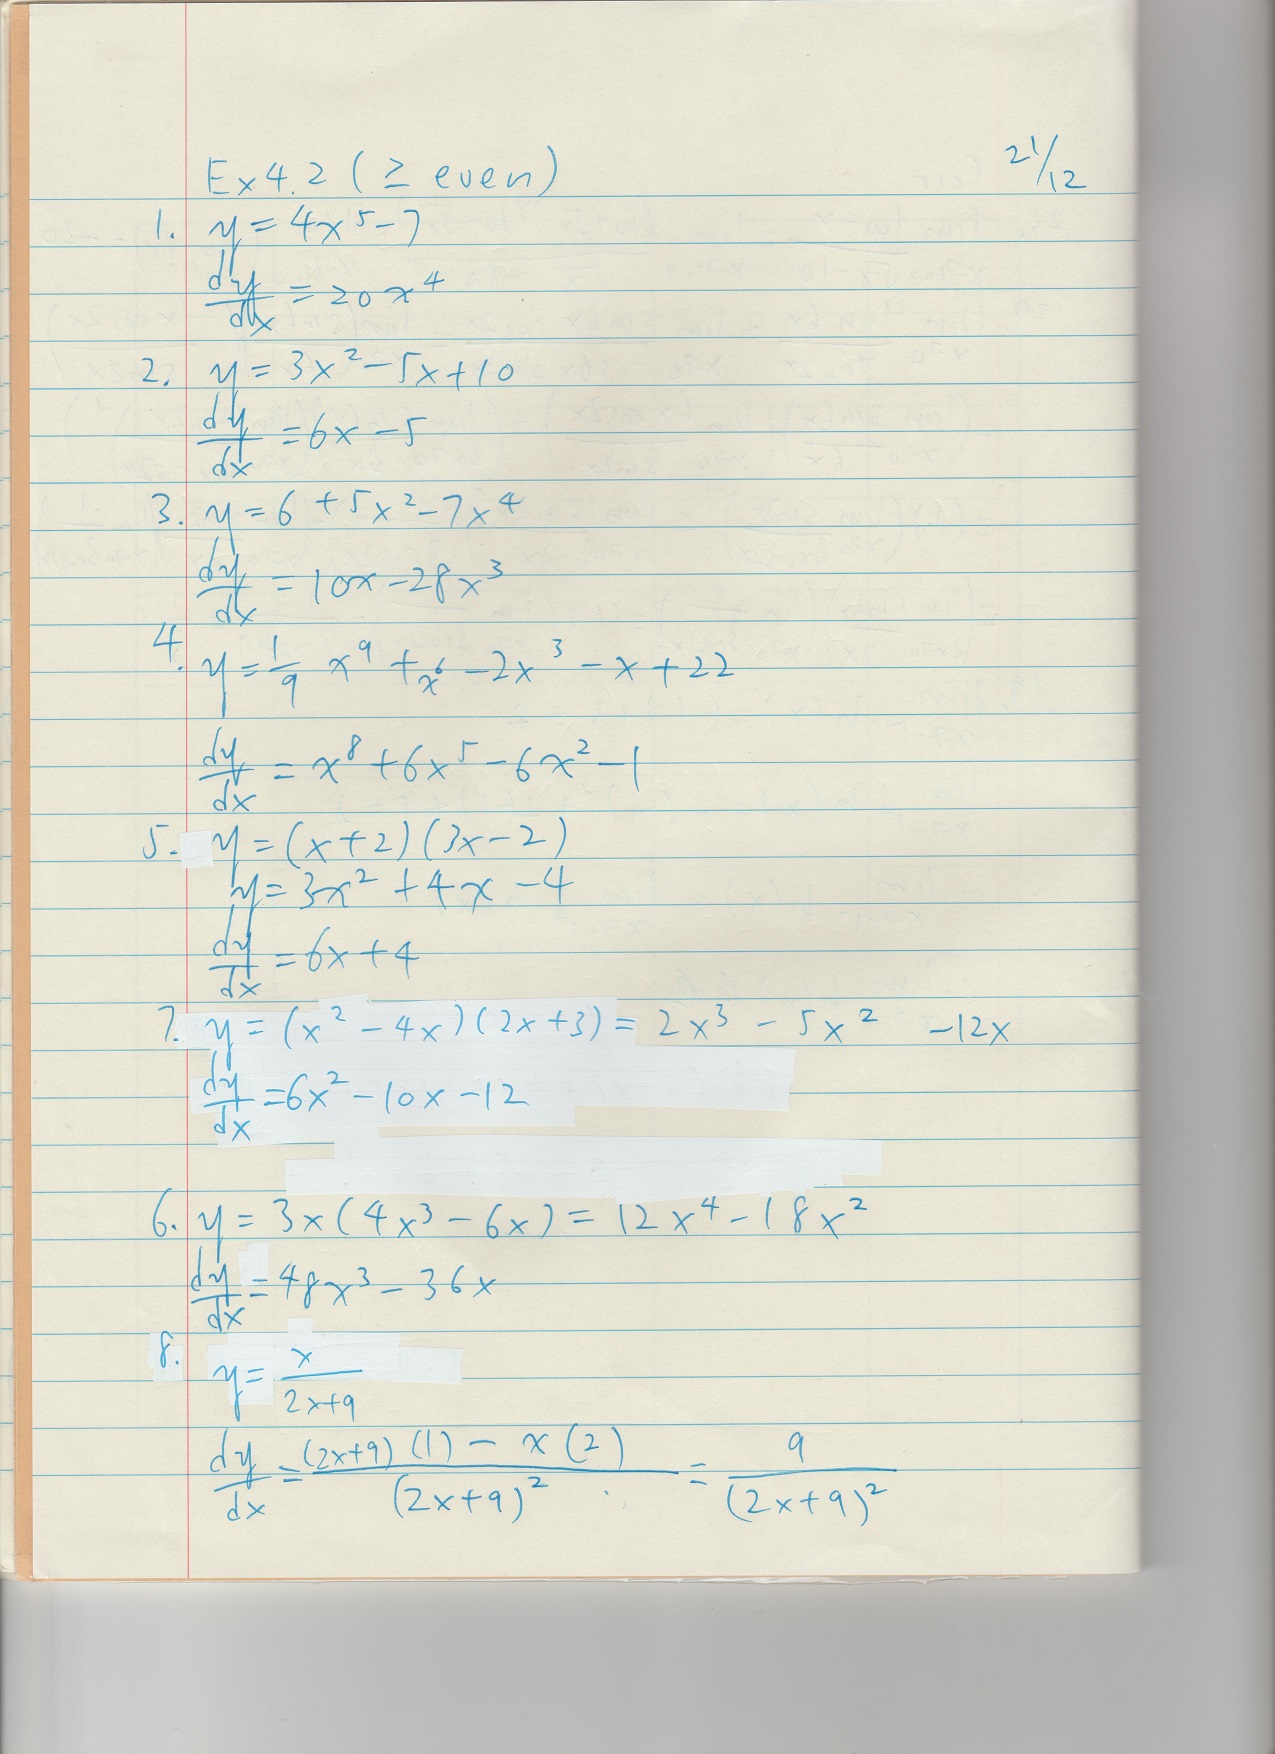 Ex 4.2 (≥ even)
21/12
1. y = 4x⁵ - 7
dy/dx = 20x⁴
2. y = 3x² - 5x + 10
dy/dx = 6x - 5
3. y = 6 + 5x² - 7x⁴
dy/dx = 10x - 28x³
4. y = 1/9 x⁹ + x⁶ - 2x³ - x + 22
dy/dx = x⁸ + 6x⁵ - 6x² - 1
5. y = (x+2)(3x-2)
y = 3x² + 4x - 4
dy/dx = 6x + 4
7. y = (x² - 4x)(2x+3) = 2x³ - 5x² - 12x
dy/dx = 6x² - 10x - 12
6. y = 3x(4x³ - 6x) = 12x⁴ - 18x²
dy/dx = 48x³ - 36x
8. y = x/(2x+9)
dy/dx = ((2x+9)(1) - x(2))/(2x+9)² = 9/(2x+9)²